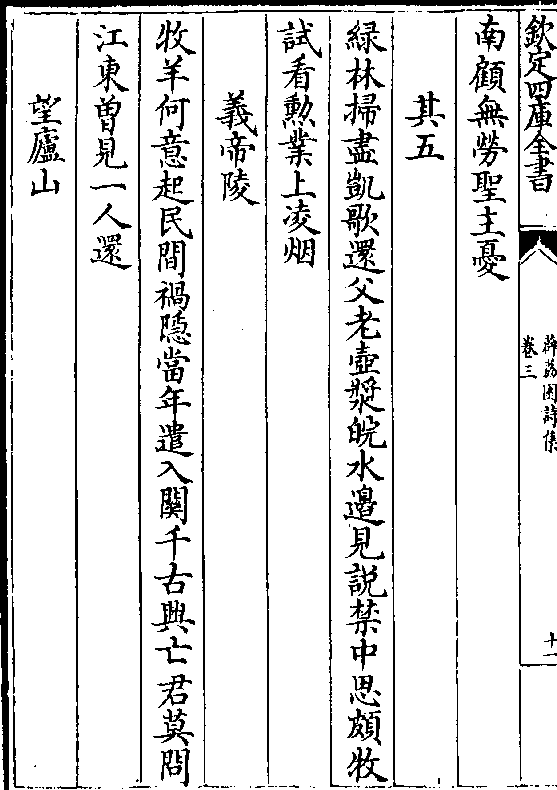 欽定四庫全書
薜荔園詩集
卷三
十一
南顧無勞聖主憂
其五
綠林掃盡凱歌還父老壺漿皖水邉見說禁中思頗牧
試看勲業上凌烟
義帝陵
牧羊何意起民間禍隱當年遣入關千古興亡君莫問
江東曽見一人還
望廬山